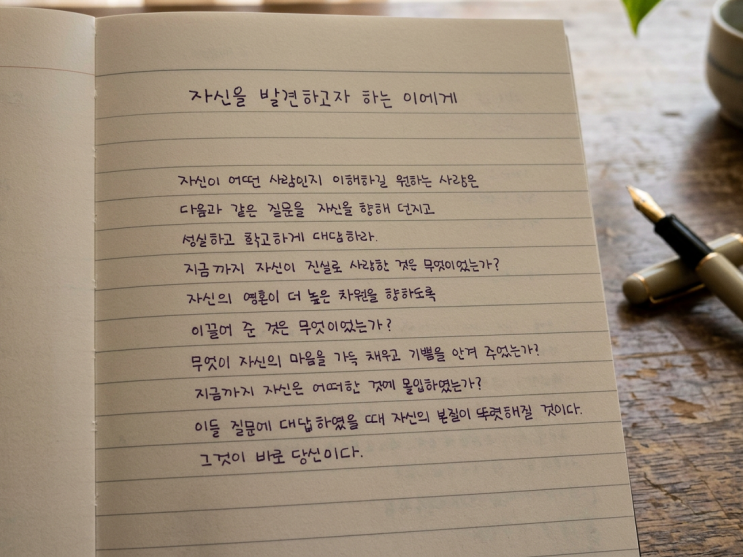 자신을 발견하고자 하는 이에게
자신이 어떤 사람인지 이해하길 원하는 사람은
다음과 같은 질문을 자신을 향해 던지고
성실하고 확고하게 대답하라.
지금까지 자신이 진실로 사랑한 것은 무엇이었는가?
자신의 영혼이 더 높은 차원을 향하도록
이끌어 준 것은 무엇이었는가?
무엇이 자신의 마음을 가득 채우고 기쁨을 안겨 주었는가?
지금까지 자신은 어떠한 것에 몰입하였는가?
이들 질문에 대답하였을 때 자신의 본질이 뚜렷해질 것이다.
그것이 바로 당신이다.